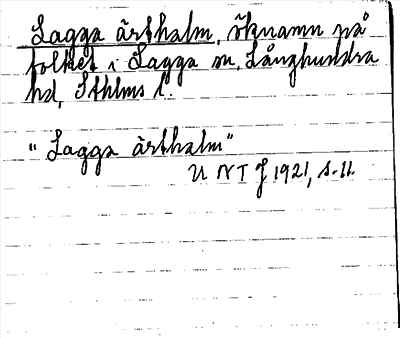 Lagga ärthalm, öknamn på
folket i Lagga sn, Långhundra
hd, Sthlms l.
"Lagga ärthalm"
U N T J 1921, s. 11.